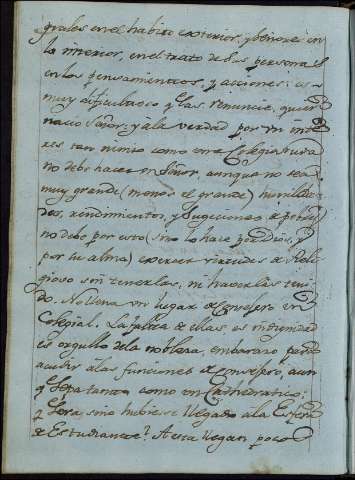 grales en el habito exterior, y Señores en
lo interior, en el trato de sus personas
en los pensamientos, y acciones: es
muy dificultoso q̃ las renuncie, quien
nacio Señor: y à la verdad por un inte
res tan nimio como una Colegiatura
no debe hacer un Señor, aunque no sea
muy grande (menos el grande) humilda
des, rendimientos, y sugeciones de pobre
no debe por esto (sino lo hace por Dios, y
por su alma) exercer virtudes de Reli
gioso sin tenerlas, ni hacerlas teni
do. No llena un lugar de Consejero un
Colegial. La falta de ellas, es indignidad
es orgullo de la nobleza, embarazo para
acudir a las funciones de Consejero, aun
q̃ sepa tanto como un Cathedratico:
q̃ sera, sino hubiese llegado a la Esfera
de Estudiante? A esta llegan pocos